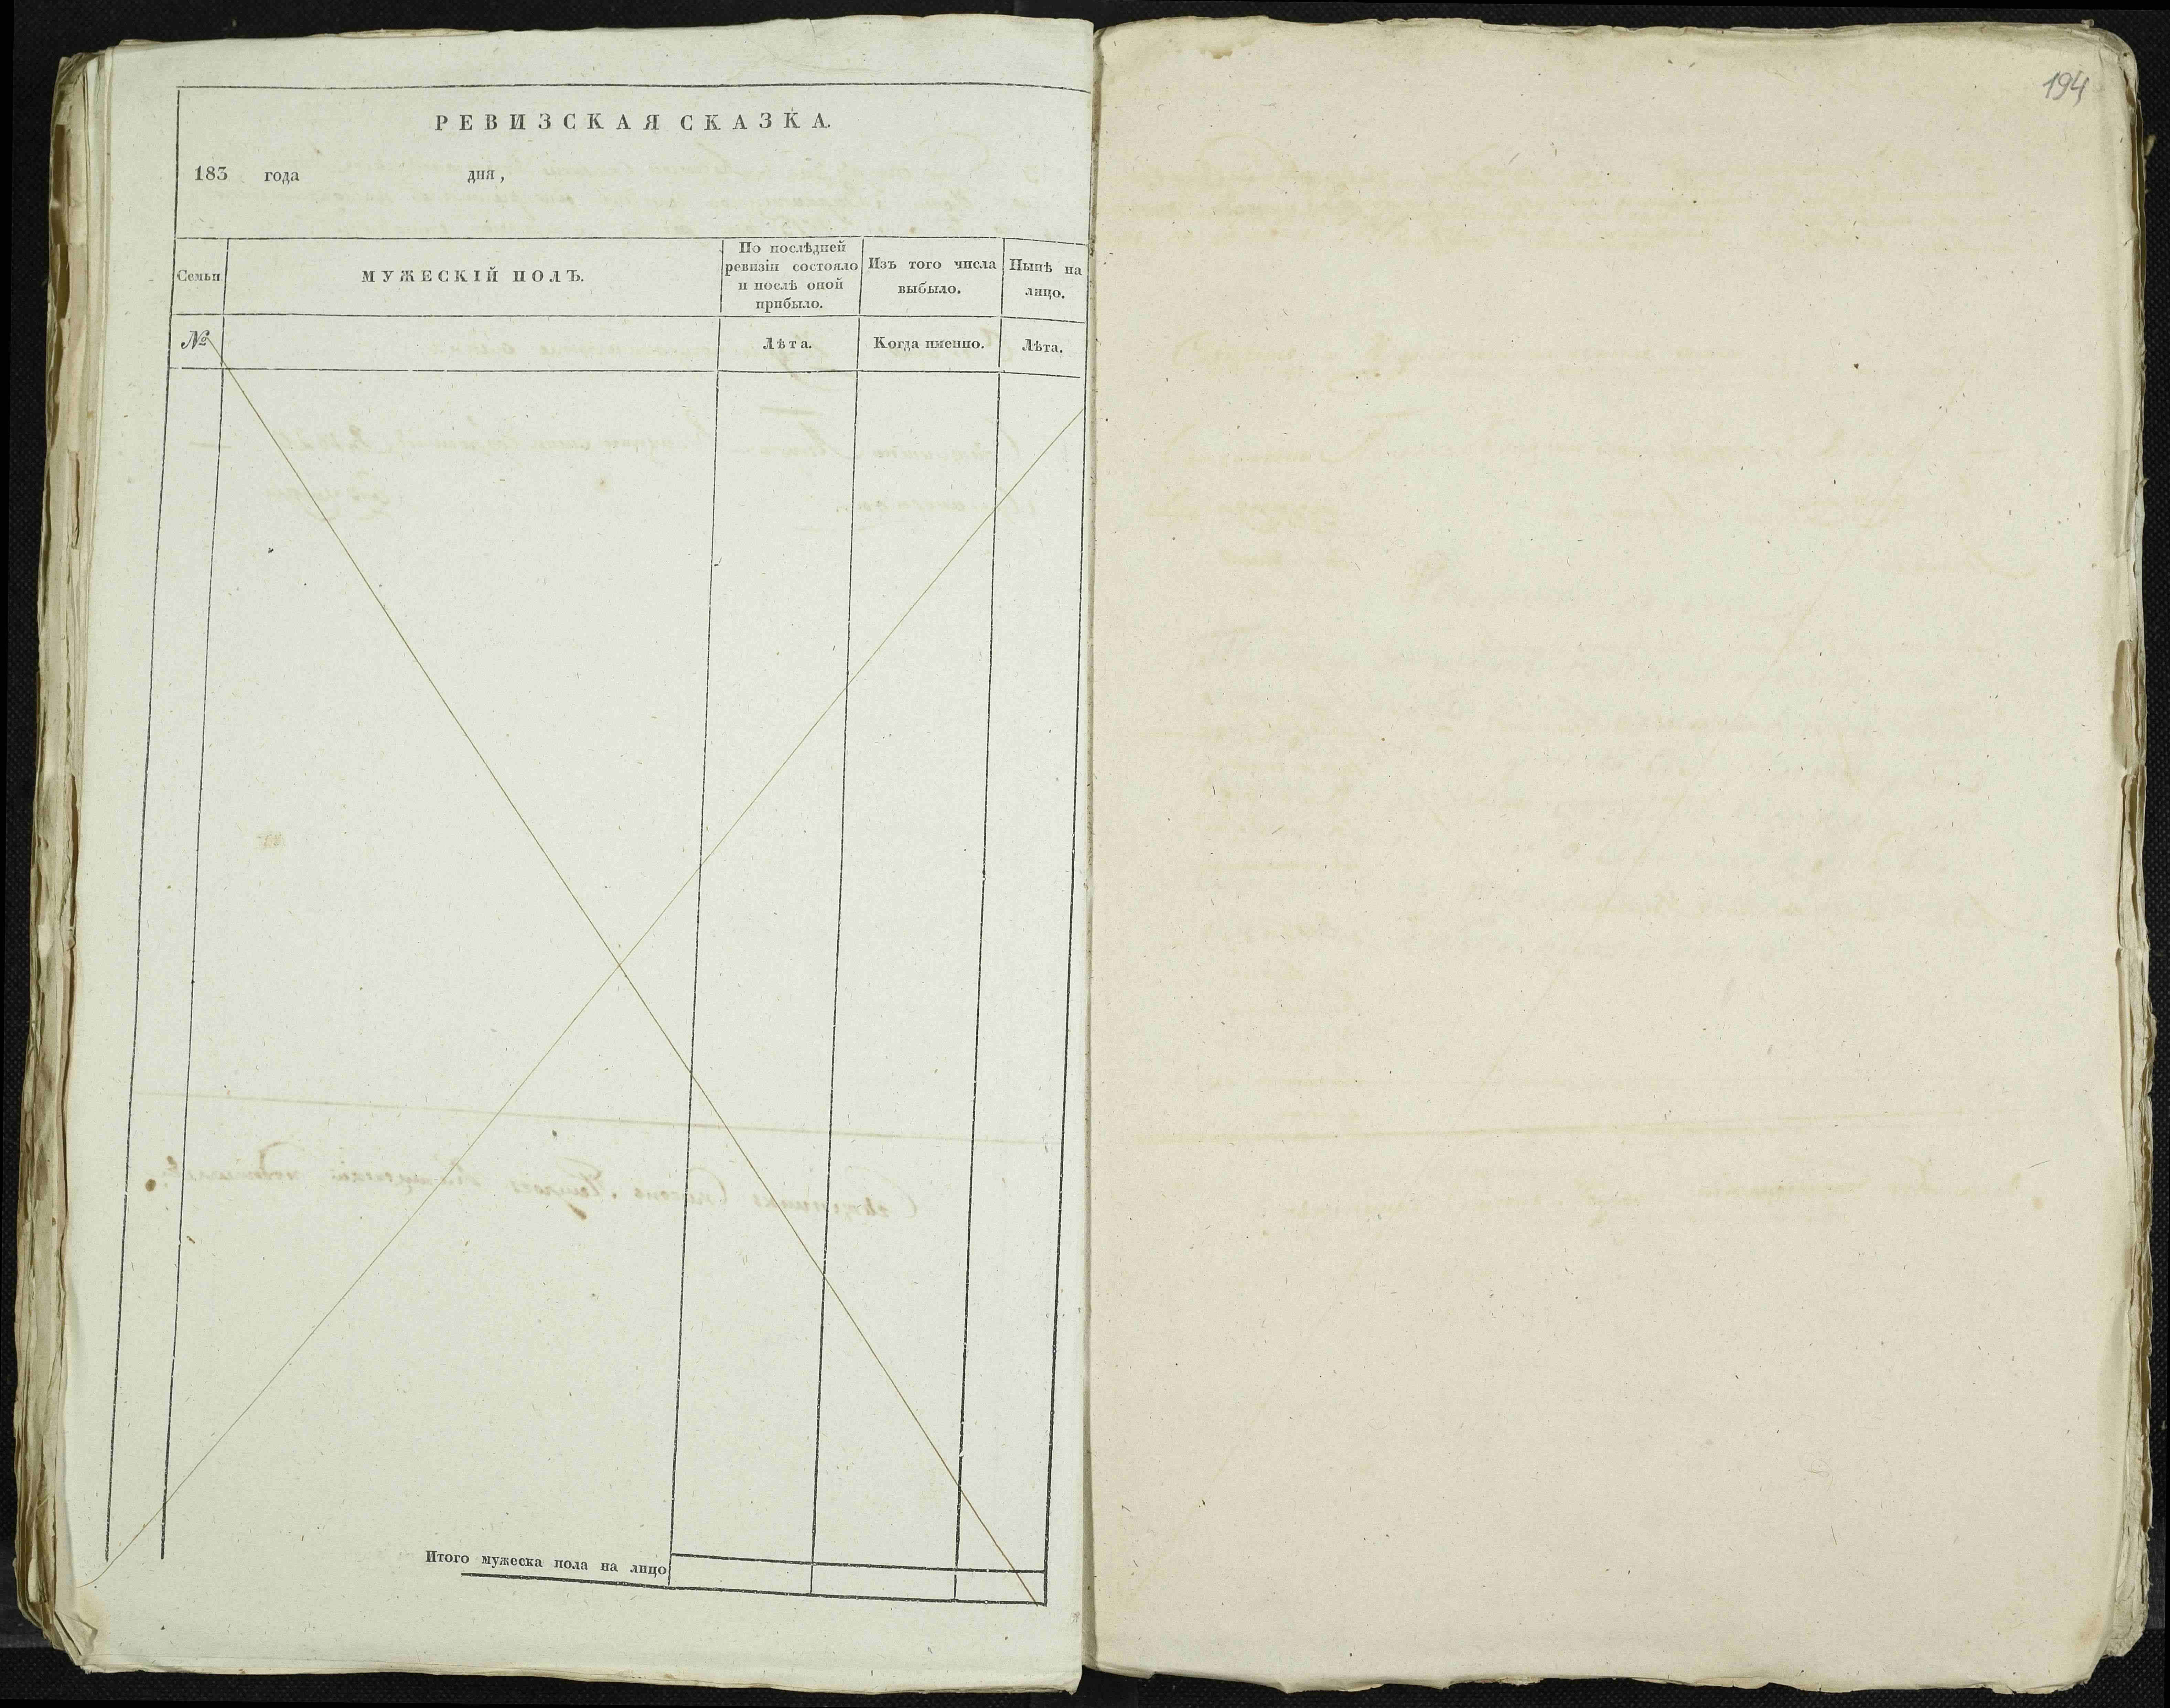 РЕВИЗСКАЯ СКАЗКА.
183 года дня,
Семьи
МУЖЕСКІЙ ПОЛЪ.
По послѣдней
ревизіи состояло
и послѣ оной
прибыло.
Изъ того числа
выбыло.
Нынѣ на
лицо.
№
Лѣта.
Когда именно.
Лѣта.
Итого мужеска пола на лицо
194